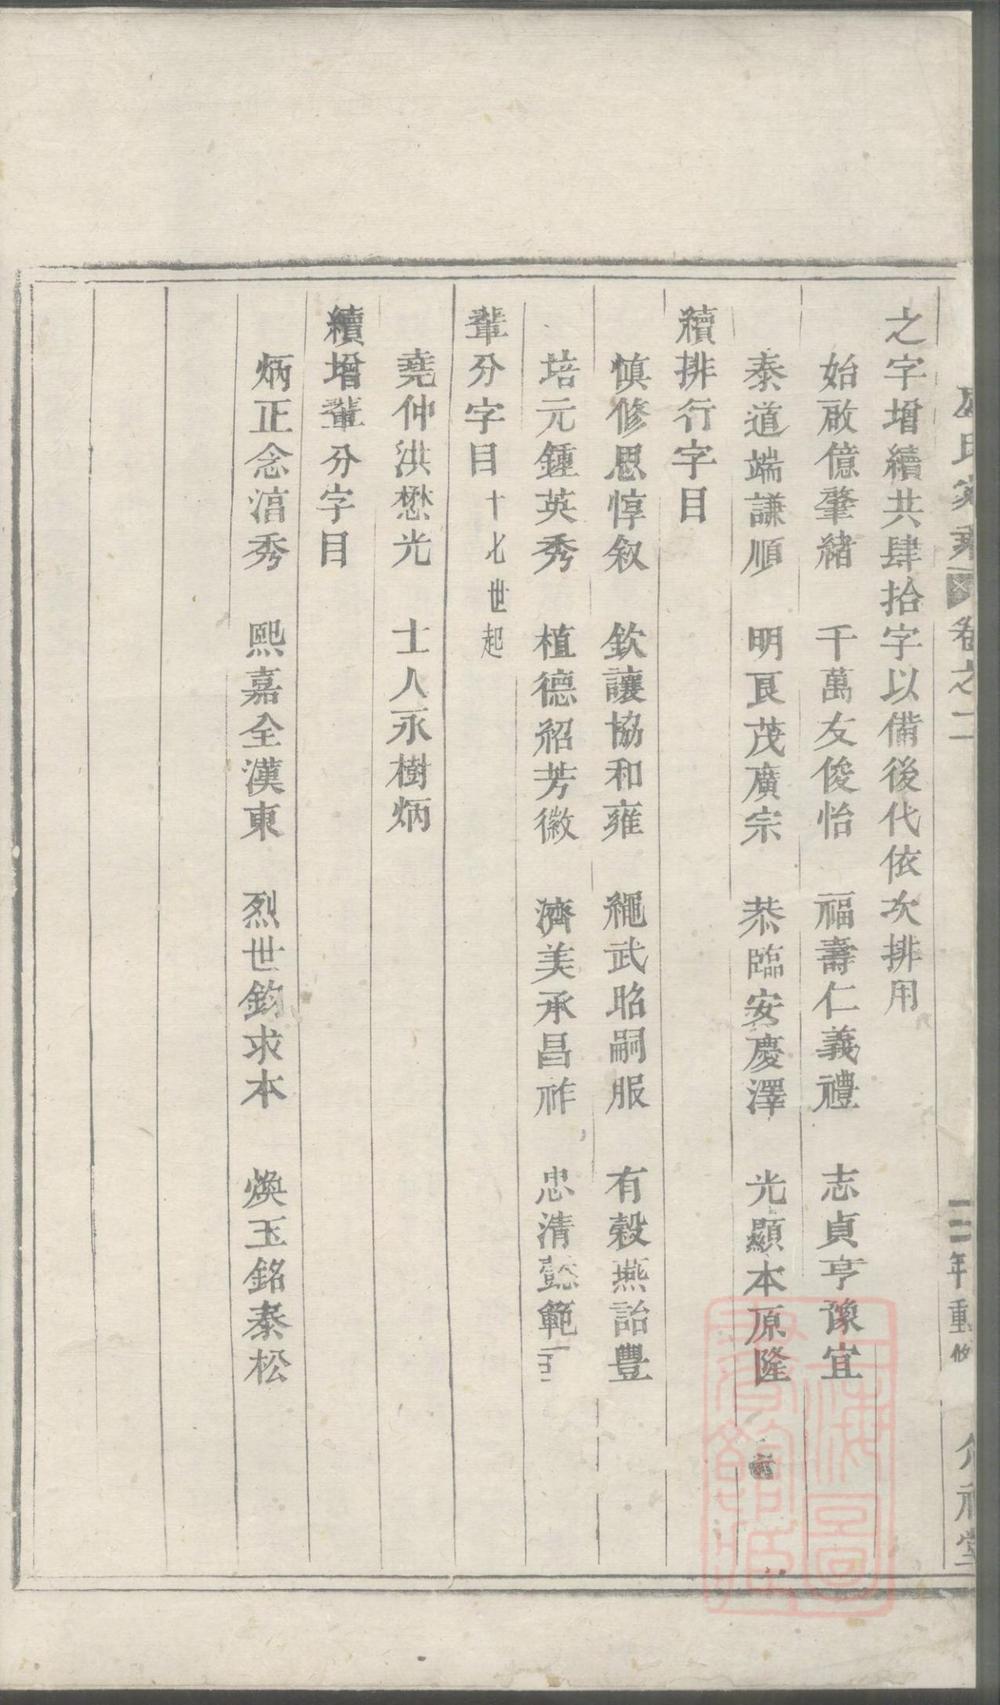 氏家乘 卷之一 三年重修
之字增續共肆拾字以備後代依次排用
始啟億肇緒 千萬友俊怡 福壽仁義禮 志貞亨豫宜
泰道端謙順 明良茂廣宗 恭臨安慶澤 光顯本原隆
續排行字目
慎修思惇叙 欽讓協和雍 繩武昭嗣服 有穀燕詒豐
培元鍾英秀 植德紹芳徽 濟美承昌祚 忠清懿範
輩分字目十七世起
堯仲洪懋光 士人永樹炳
續增輩分字目
炳正念湻秀 熙嘉全漢東 烈世鈞求本 煥玉銘秦松